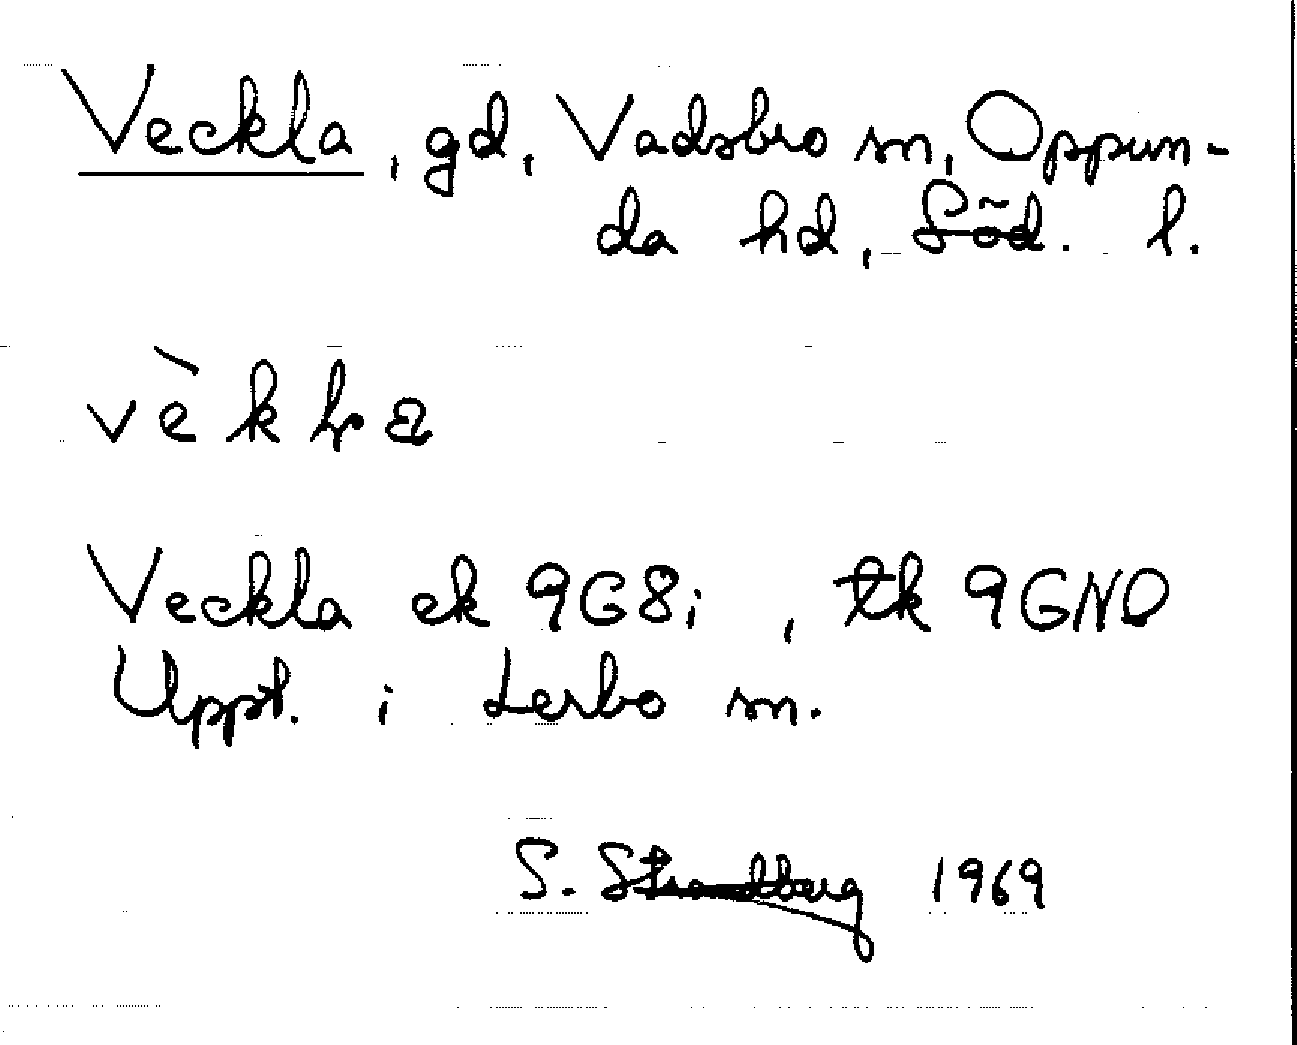 Veckla, gd, Vadsbro sn, Oppun-
da hd, Söd. l.
vèkla
Veckla ek 9G8i, tk 9GNO
Uppt. i Lerbo sn.
S. Strandberg 1969